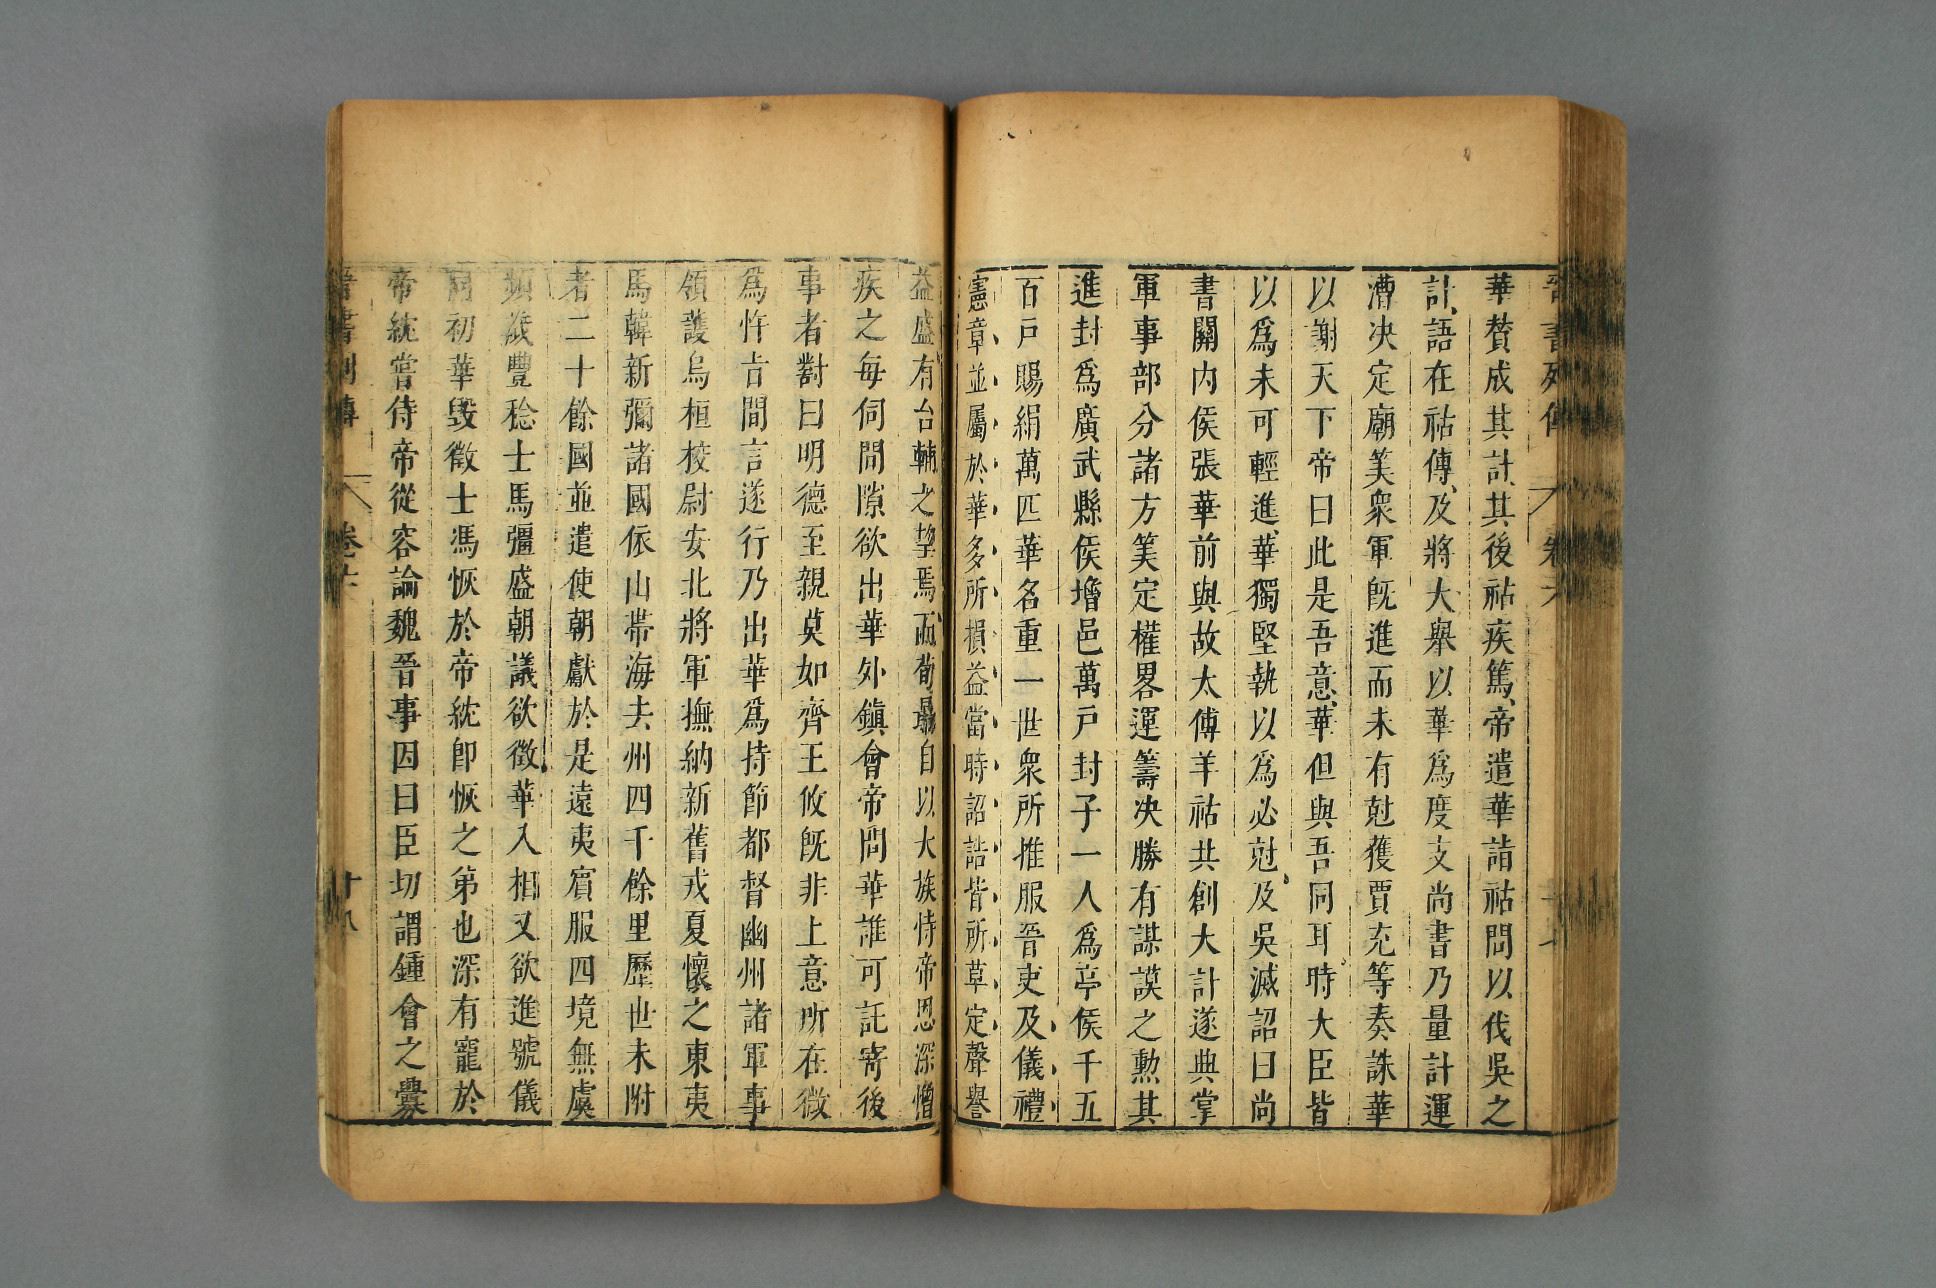 晉書列傳 卷六 十七
華賛成其計其後祜疾篤帝遣華詣祜問以伐吳之
計語在祜傳及將大舉以華爲度支尚書乃量計運
漕决定廟筭衆軍旣進而未有尅獲賈充等奏誅華
以謝天下帝曰此是吾意華但與吾同耳時大臣皆
以爲未可輕進華獨堅執以爲必尅及吳滅詔曰尚
書關内侯張華前與故太傅羊祜共創大計遂典掌
軍事部分諸方筭定權畧運籌决勝有謀謨之勲其
進封爲廣武縣侯增邑萬戸封子一人爲亭侯千五
百戸賜絹萬匹華名重一世衆所推服晉吏及儀禮
憲章並屬於華多所損益當時詔誥皆所草定聲譽
益盛有台輔之望焉而荀朂自以大族恃帝恩深憎
疾之每伺間隙欲出華外鎮會帝問華誰可託寄後
事者對曰明德至親莫如齊王攸旣非上意所在微
爲忤㫖間言遂行乃出華爲持節都督幽州諸軍事
領護烏桓校尉安北將軍撫納新舊戎夏懷之東夷
馬韓新彌諸國依山帯海去州四千餘里歷世未附
者二十餘國並遣使朝獻於是遠夷賓服四境無虞
頻歲豐稔士馬彊盛朝議欲徴華入相又欲進號儀
同初華毀徴士馮恢於帝紞卽恢之第也深有寵於
帝紞嘗侍帝從容論魏晉事因曰臣切謂鍾會之釁
晉書列傳 卷六 十八